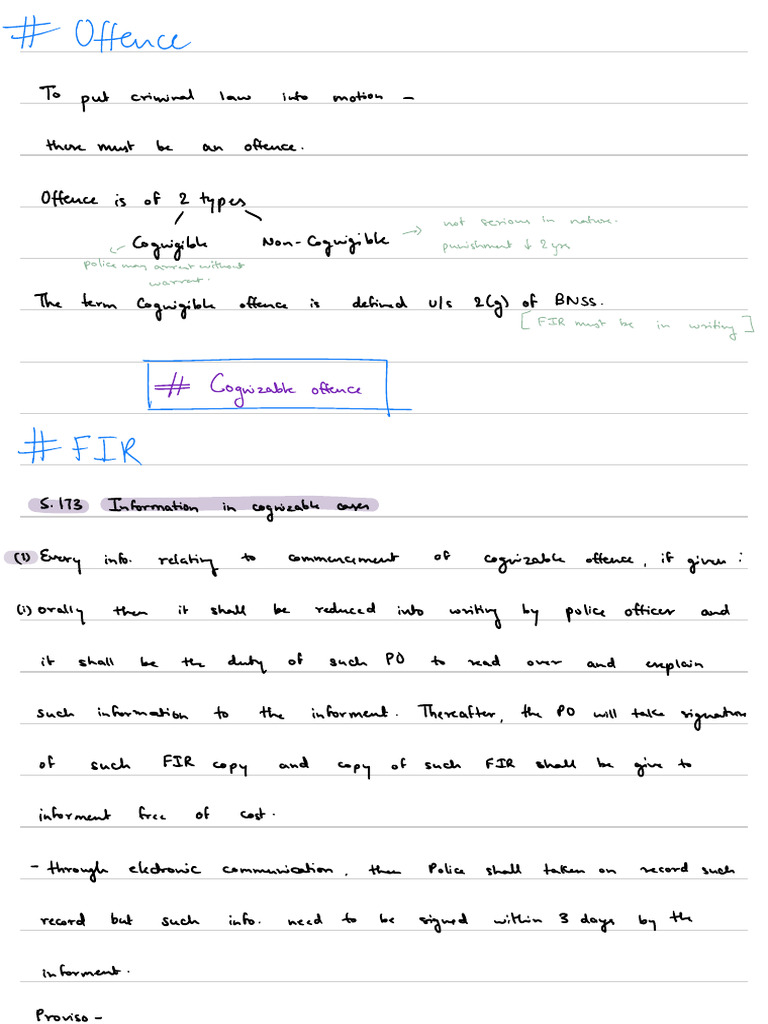 # Offence
To put criminal law into motion –
there must be an offence.
Offence is of 2 types
Cognigible Non-Cognigible → not serious in nature.
punishment ↓ 2 yrs
police may arrest without
warrant.
The term Cognigible offence is defined u/s 2(g) of BNSS.
[FIR must be in writing]
# Cognizable offence
# FIR
S.173 Information in cognizable cases
(1) Every info. relating to commencement of cognizable offence, if given :
(i) orally then it shall be reduced into writing by police officer and
it shall be the duty of such PO to read over and explain
such information to the informent. Thereafter, the PO will take signature
of such FIR copy and copy of such FIR shall be give to
informent free of cost.
– through electronic communication, then Police shall taken on record such
record but such info. need to be signed within 3 days by the
informent.
Proviso –